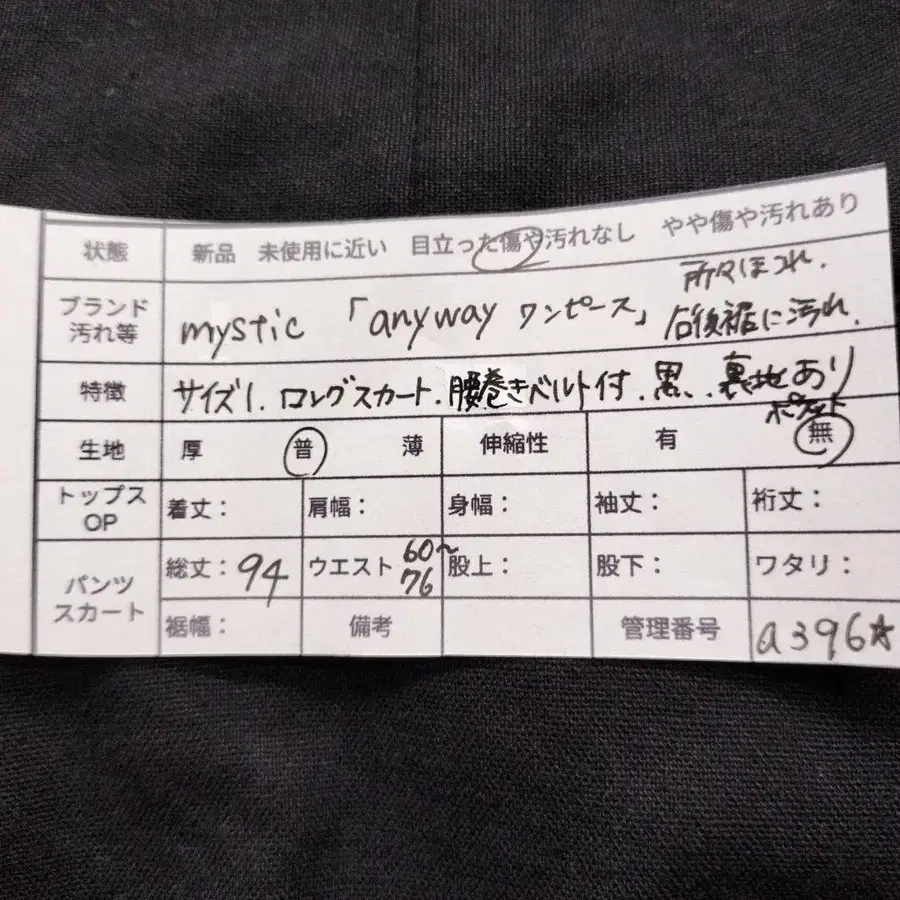 状態 新品 未使用に近い 目立った傷や汚れなし やや傷や汚れあり
ブランド 汚れ等 mystic 「anyway ワンピース」 所々ほつれ.
右後裾に汚れ.
特徴 サイズ1. ロングスカート. 腰巻きベルト付. 黒. 裏地あり
ポケット
生地 厚 普 薄 伸縮性 有 無
トップス OP 着丈: 肩幅: 身幅: 袖丈: 裄丈:
パンツ スカート 総丈: 94 ウエスト 60~76 股上: 股下: ワタリ:
裾幅: 備考 管理番号 a396☆